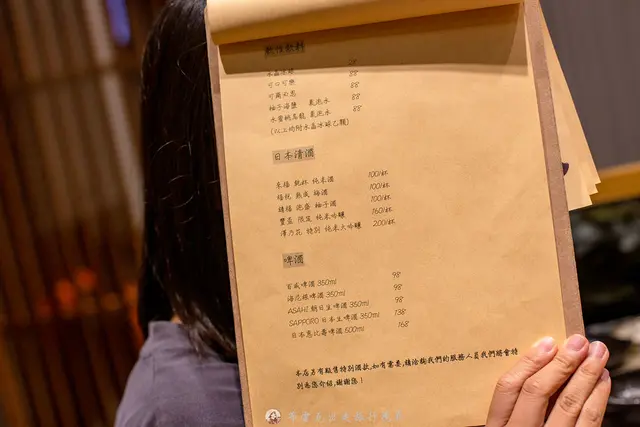 軟性飲料
88'
可口可樂 88'
可爾沁思 88'
柚子海鹽 氣泡水 88'
水蜜桃烏龍 氣泡水 88'
(以上均附水晶冰球乙顆)
日本清酒
純米酒 100/杯
熟成 梅酒 100/杯
柚子酒 100/杯
豐盃 限定 純米吟釀 160/杯
澤乃花 特別 純米大吟釀 200/杯
啤酒
百威啤酒 350ml 98'
海尼根啤酒 350ml 98'
ASAHI 朝日生啤酒 350ml 98'
SAPPORO 日本生啤酒 350ml 138'
日本惠比壽啤酒 500ml 168'
本店另有販售特別酒款,如有需要,請洽詢我們的服務人員我們將會特
別為您介紹,謝謝您!